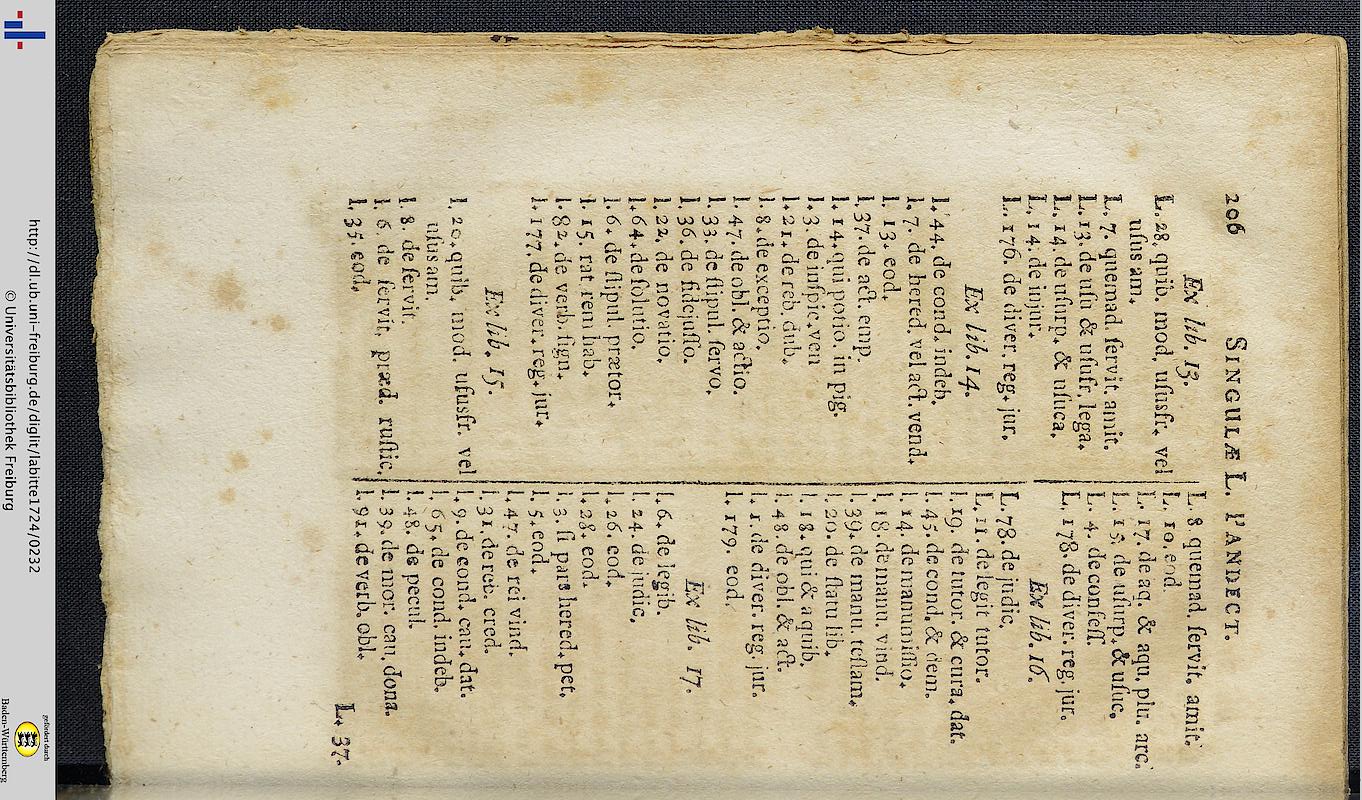 206 SINGULÆ L. PANDECT.
Ex lib. 13.
L. 28. quib. mod. uſusfr. vel
uſus am.
L. 7. quemad. ſervit. amit.
L. 13. de uſu & uſufr. lega.
L. 14. de uſurp. & uſuca.
L. 14. de injur.
L. 176. de diver. reg. jur.
Ex lib. 14.
l. 44. de cond. indeb.
l. 7. de hered. vel act. vend.
l. 13. eod.
l. 37. de act. emp.
l. 14. qui potio. in pig.
l. 3. de inſpic. ven
l. 21. de reb. dub.
l. 8. de exceptio.
l. 47. de obl. & actio.
l. 33. de ſtipul. ſervo.
l. 36. de fidejuſſo.
l. 22. de novatio.
l. 64. de ſolutio.
l. 6. de ſtipul. prætor.
l. 15. rat rem hab.
l. 82. de verb. ſign.
l. 177. de diver. reg. jur.
Ex lib. 15.
l. 20. quib. mod. uſusfr. vel
uſus am.
l. 8. de ſervit.
l. 6. de ſervit. præd. ruſtic.
l. 35. eod.
L. 8 quemad. ſervit. amit.
L. 10. eod.
L. 17. de aq. & aqu. plu. arc.
L. 15. de uſurp. & uſuc.
L. 4. de confeſſ.
L. 178. de diver. reg. jur.
Ex lib. 16.
L. 78. de judic.
L. 11. de legit tutor.
l. 19. de tutor. & cura. dat.
l. 45. de cond. & dem.
l. 14. de manumiſſio.
l. 18. de manu. vind.
l. 39. de manu. teſtam.
l. 20. de ſtatu lib.
l. 18. qui & a quib.
l. 48. de obl. & act.
l. 1. de diver. reg. jur.
l. 179. eod.
Ex lib. 17.
l. 6. de legib.
l. 24. de judic.
l. 26. eod.
l. 28. eod.
l. 3. ſi pars hered. pet.
l. 5. eod.
l. 47. de rei vind.
l. 31. de reb. cred.
l. 9. de cond. cau. dat.
l. 65. de cond. indeb.
l. 48. de pecul.
l. 39. de mor. cau. dona.
l. 91. de verb. obl.
L. 37.
http://dl.ub.uni-freiburg.de/diglit/labitte1724/0232
© Universitätsbibliothek Freiburg
gefördert durch
Baden-Württemberg